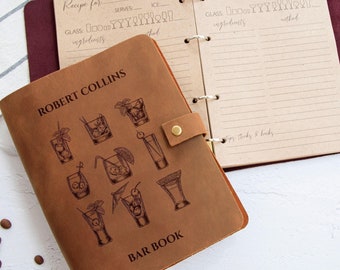 ROBERT COLLINS
BAR BOOK
Recipe for
SERVES
GLASS:
ingredients
method
SERVES
GLASS:
ingredients
method
Tips, tricks & hacks